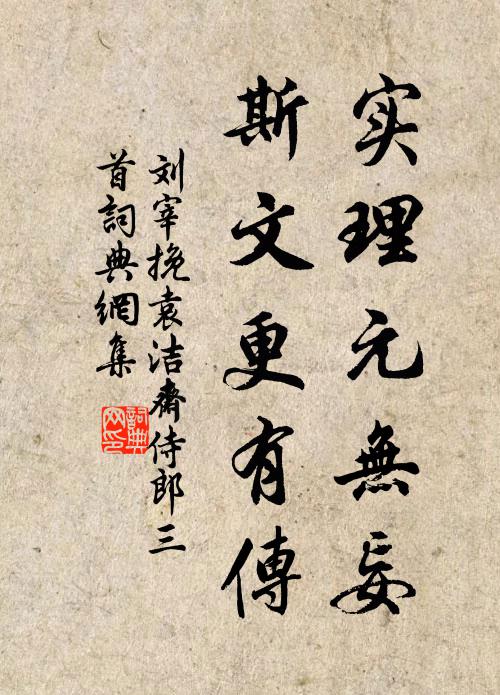 实理元無妄
斯文更有傳
刘宰挽袁洁齋侍郎三
首詞典網集
詞典
网印